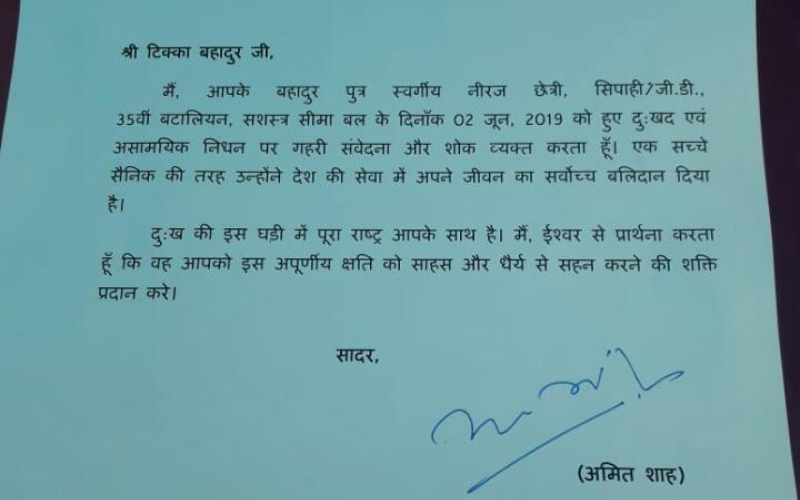 श्री टिक्का बहादुर जी,
मैं, आपके बहादुर पुत्र स्वर्गीय नीरज छेत्री, सिपाही/जी.डी.,
35वीं बटालियन, सशस्त्र सीमा बल के दिनाँक 02 जून, 2019 को हुए दु:खद एवं
असामयिक निधन पर गहरी संवेदना और शोक व्यक्त करता हूँ। एक सच्चे
सैनिक की तरह उन्होंने देश की सेवा में अपने जीवन का सर्वोच्च बलिदान दिया
है।
दु:ख की इस घड़ी में पूरा राष्ट्र आपके साथ है। मैं, ईश्वर से प्रार्थना करता
हूँ कि वह आपको इस अपूर्णीय क्षति को साहस और धैर्य से सहन करने की शक्ति
प्रदान करे।
सादर,
(अमित शाह)